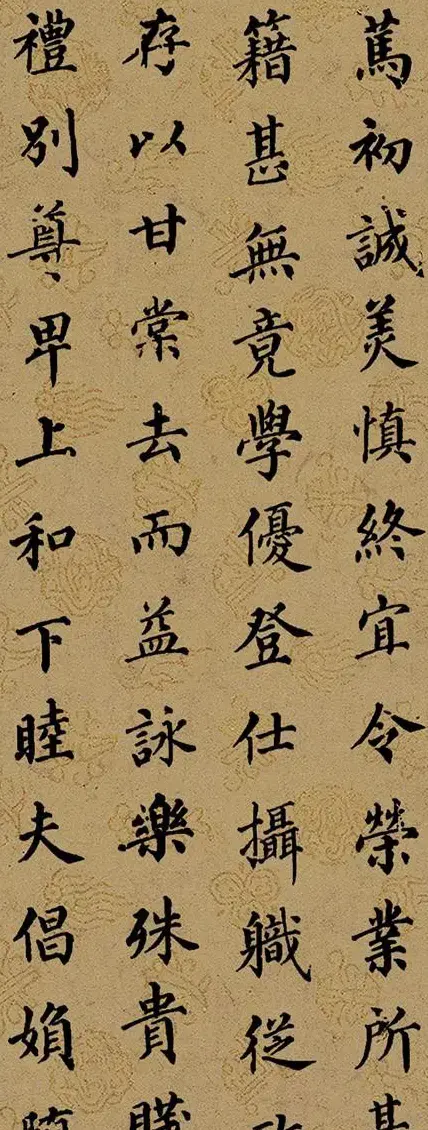 篤初誠美慎終宜令榮業所基
籍甚無竟學優登仕攝職從
存以甘棠去而益詠樂殊貴賤
禮別尊卑上和下睦夫倡婦隨